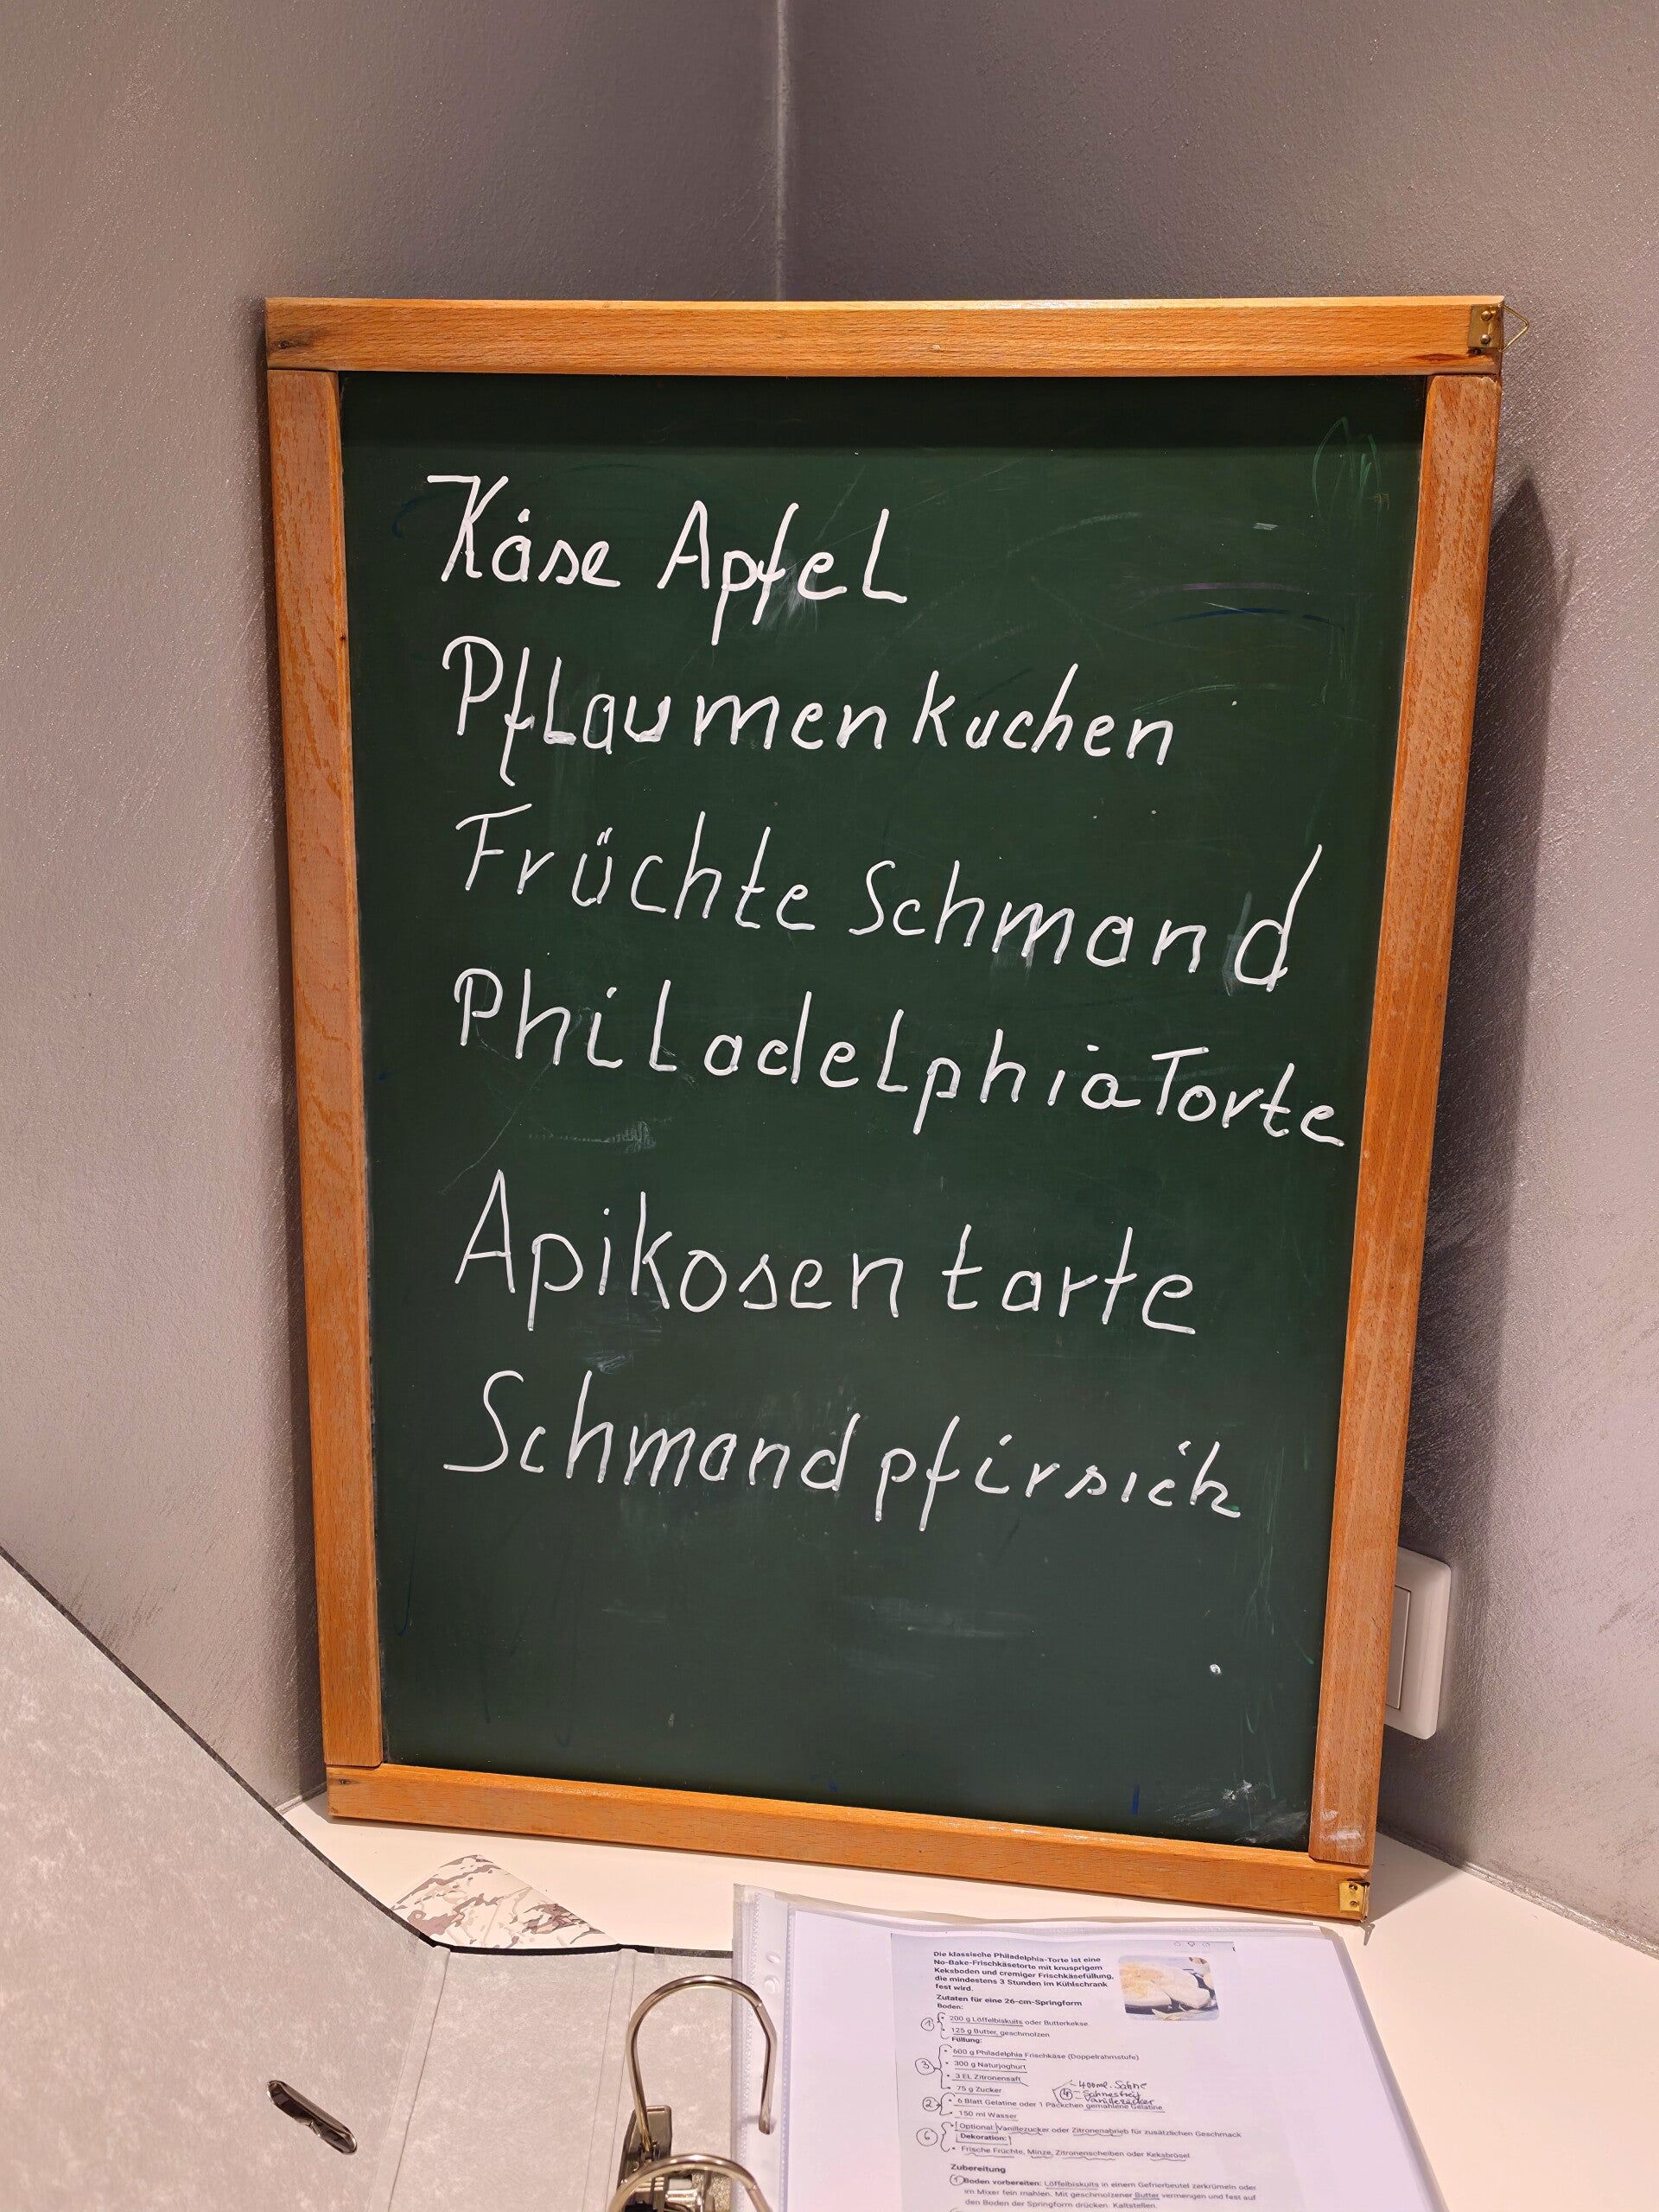 Käse Apfel
Pflaumenkuchen
Früchte Schmand
PhiladelphiaTorte
Apikosentarte
Schmandpfirsich
Die klassische Philadelphia-Torte ist eine
No-Bake-Frischkäsetorte mit knusprigem
Keksboden und cremiger Frischkäsefüllung,
die mindestens 3 Stunden im Kühlschrank
fest wird.
Zutaten für eine 26-cm-Springform
Boden:
① • 200 g Löffelbiskuits oder Butterkekse
• 125 g Butter, geschmolzen
Füllung:
③ • 600 g Philadelphia Frischkäse (Doppelrahmstufe)
• 300 g Naturjoghurt
• 3 EL Zitronensaft
• 75 g Zucker
④ - 400ml. Sahne
- Sahnesteif
- Vanillezucker
② • 6 Blatt Gelatine oder 1 Päckchen gemahlene Gelatine
• 150 ml Wasser
⑥ • Optional: Vanillezucker oder Zitronenabrieb für zusätzlichen Geschmack
Dekoration:
• Frische Früchte, Minze, Zitronenscheiben oder Keksbrösel
Zubereitung
① Boden vorbereiten: Löffelbiskuits in einem Gefrierbeutel zerkrümeln oder
im Mixer fein mahlen. Mit geschmolzener Butter vermengen und fest auf
den Boden der Springform drücken. Kaltstellen.